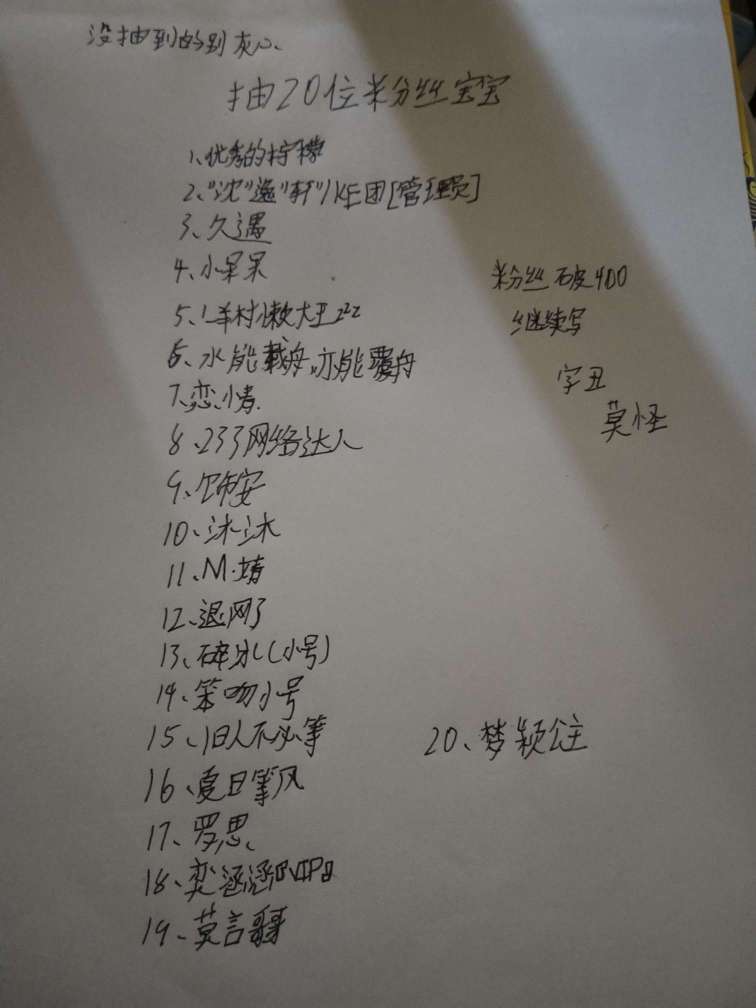 没抽到的别灰心、
抽20位粉丝宝宝
1、优秀的柠檬
2、"沈"逸"轩"/KE团[管理员]
3、久遇
4、小呆呆
5、羊村懒大王222
6、水能载舟,亦能覆舟
7、恋情.
8、233网络达人
9、饰安
10、沐沐
11、M·靖
12、退网了
13、碎冰(小号)
14、笨吻小号
15、旧人不必等
16、夏日等风
17、罗思、
18、奕涵涵『VIP』
19、莫言哥
20、梦颖公主
粉丝破400
继续写
字丑
莫怪